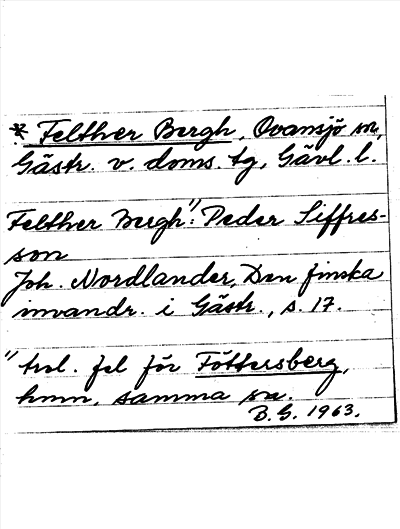 * Felther Bergh, Ovansjö sn,
Gästr. v. doms. tg, Gävl. l.
Felther Bergh": Peder Siffres-
son
Joh. Nordlander, Den finska
invandr. i Gästr., s. 17.
" trol. fel för Föttersberg,
hmn, samma sn.
B.G. 1963.